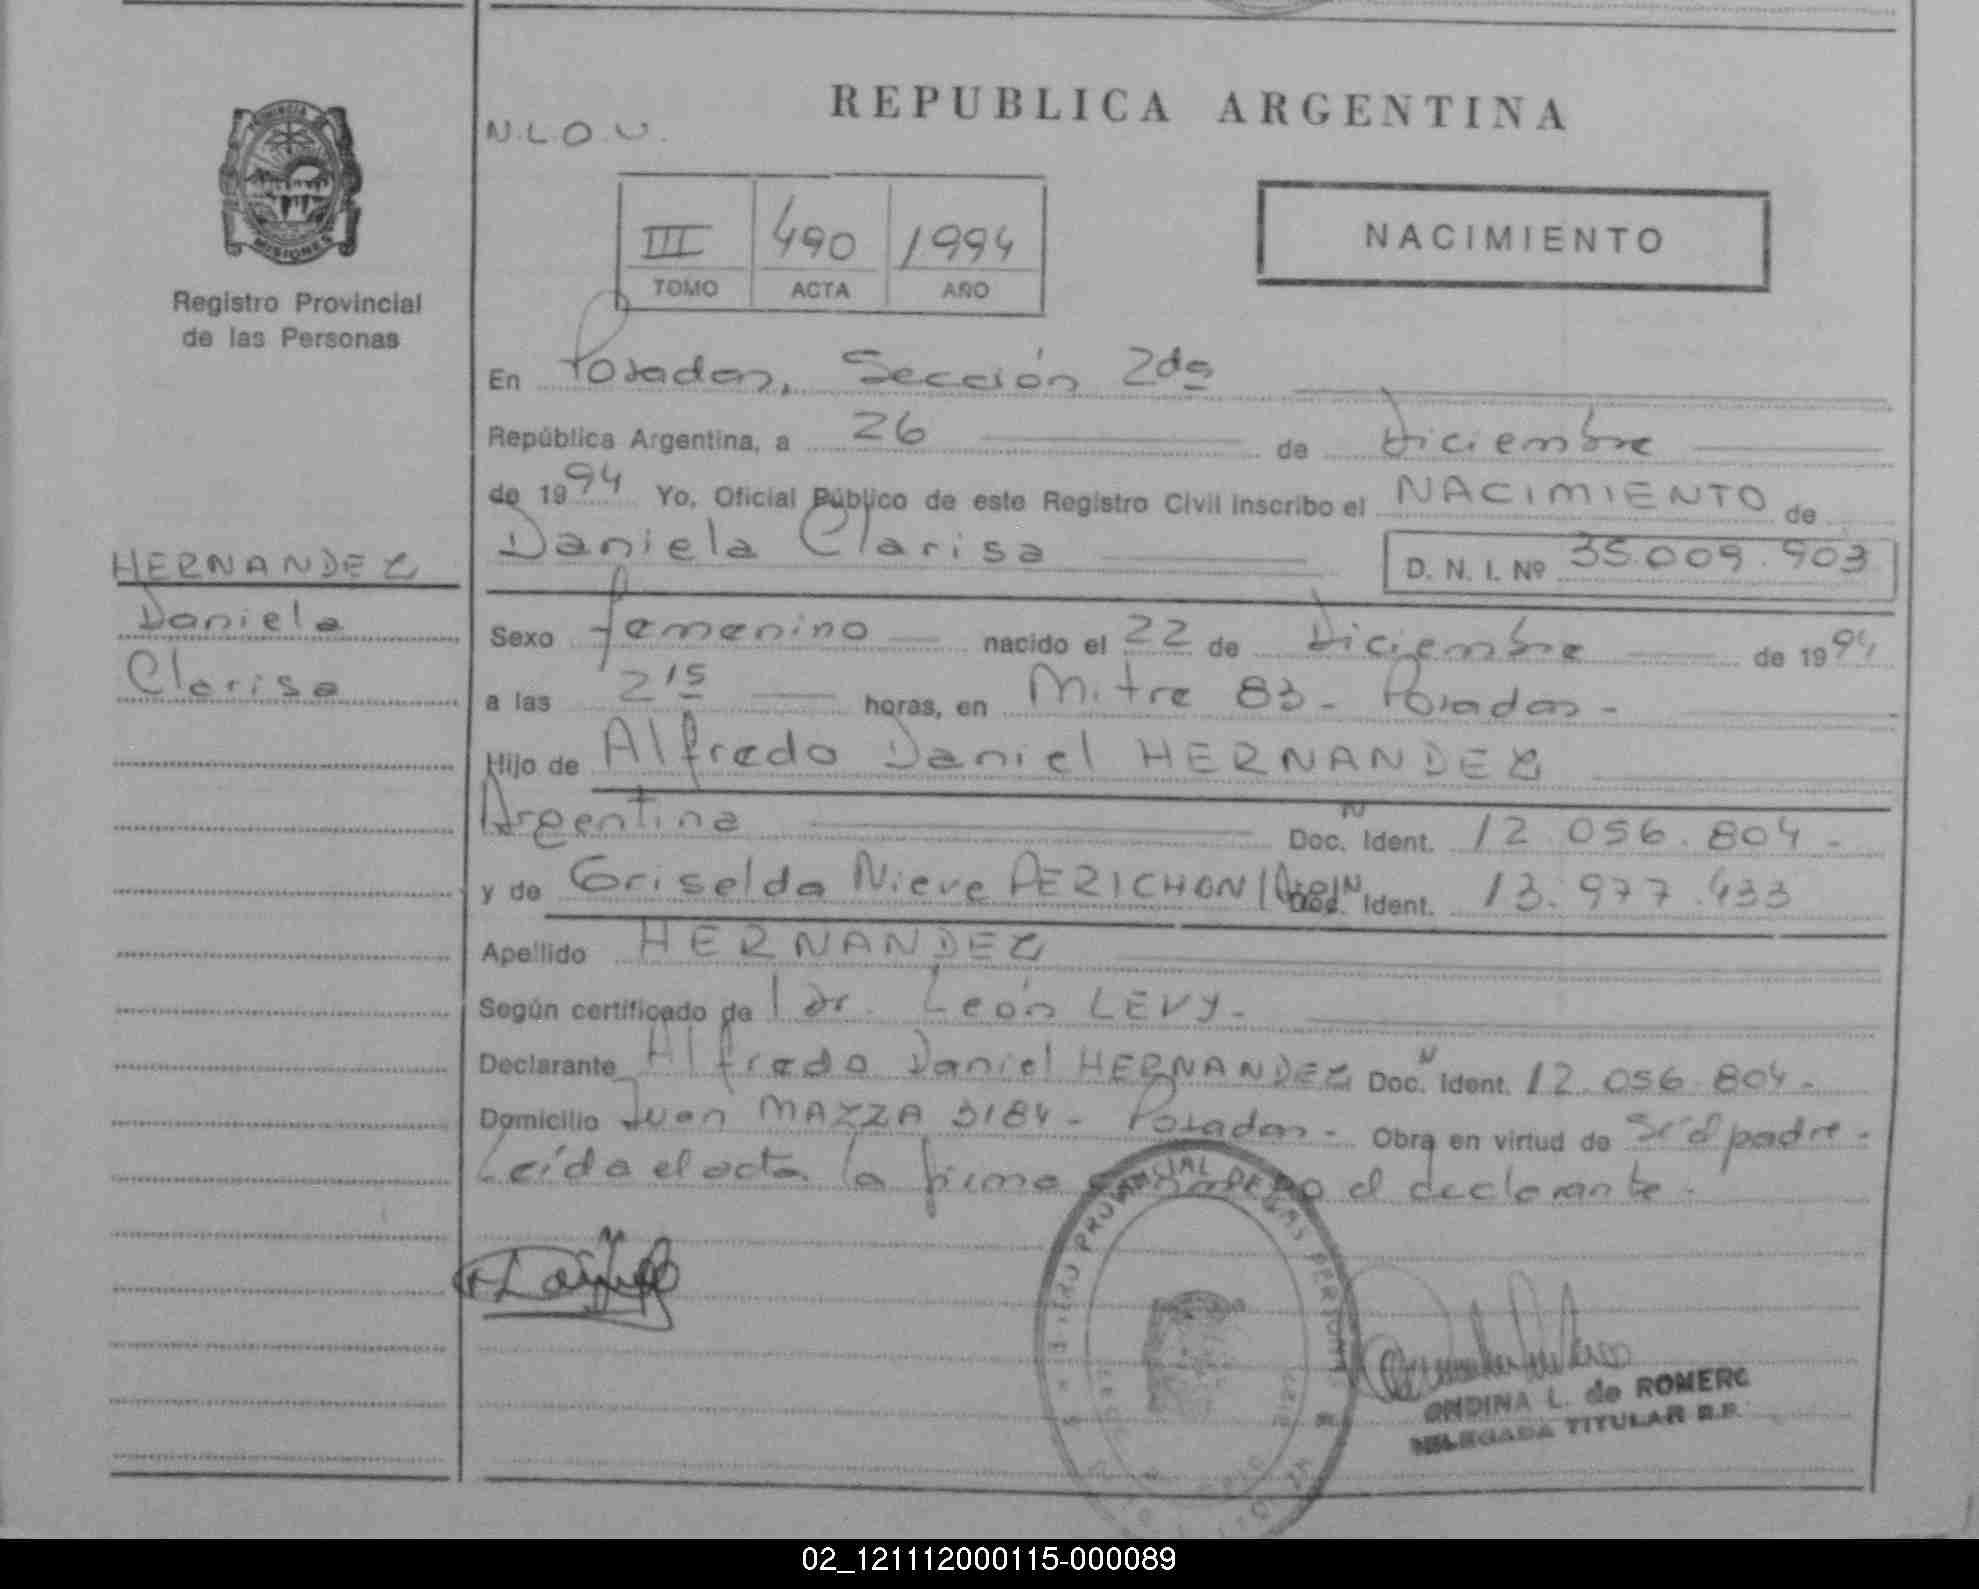 REPUBLICA ARGENTINA
N.L.O.U.
MISIONES
Registro Provincial
de las Personas
III 490 1994
TOMO ACTA AÑO
NACIMIENTO
En Posadas, Sección 2da
República Argentina, a 26 de Diciembre
de 1994 Yo, Oficial Público de este Registro Civil inscribo el NACIMIENTO de
Daniela Clarisa D. N. I. Nº 35.009.903
HERNANDEZ
Daniela
Clarisa
Sexo femenino nacido el 22 de Diciembre de 1994
a las 2 15 horas, en Mitre 83 - Posadas -
Hijo de Alfredo Daniel HERNANDEZ
Argentina Doc. N Ident. 12.056.804 -
y de Griselda Nieve PERICHON Doc. N Ident. 13.977.433
Apellido HERNANDEZ
Según certificado de l Dr. León LEVY -
Declarante Alfredo Daniel HERNANDEZ Doc. N Ident. 12.056.804 -
Domicilio Juan MAZZA 3184 - Posadas - Obra en virtud de Ser el padre -
Leída el acta la firma el declarante -
ONDINA L. de ROMERO
DELEGADA TITULAR R.P.
02_121112000115-000089